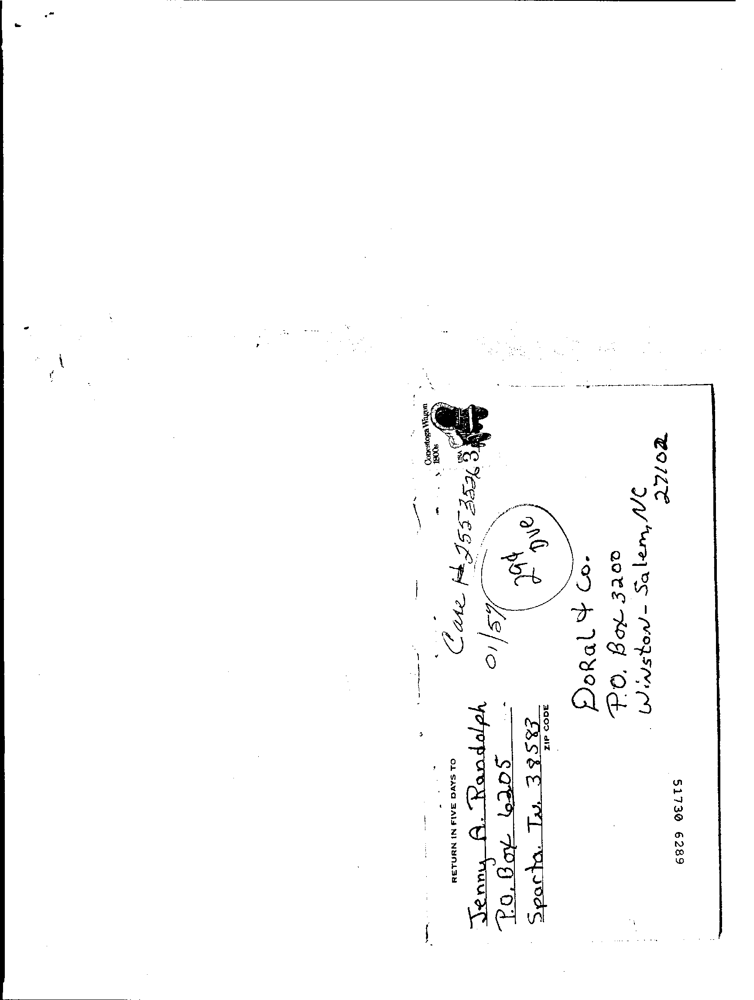 RETURN IN FIVE DAYS TO
Jenny A. Randolph
P.O. Box 6205
Sparta, Tn. 38583
ZIP CODE
Conestoga Wagon
1800s
USA
01/57
29¢
Due
DORal & Co.
P.O. Box 3200
Winston-Salem, NC
27102
51730 6289